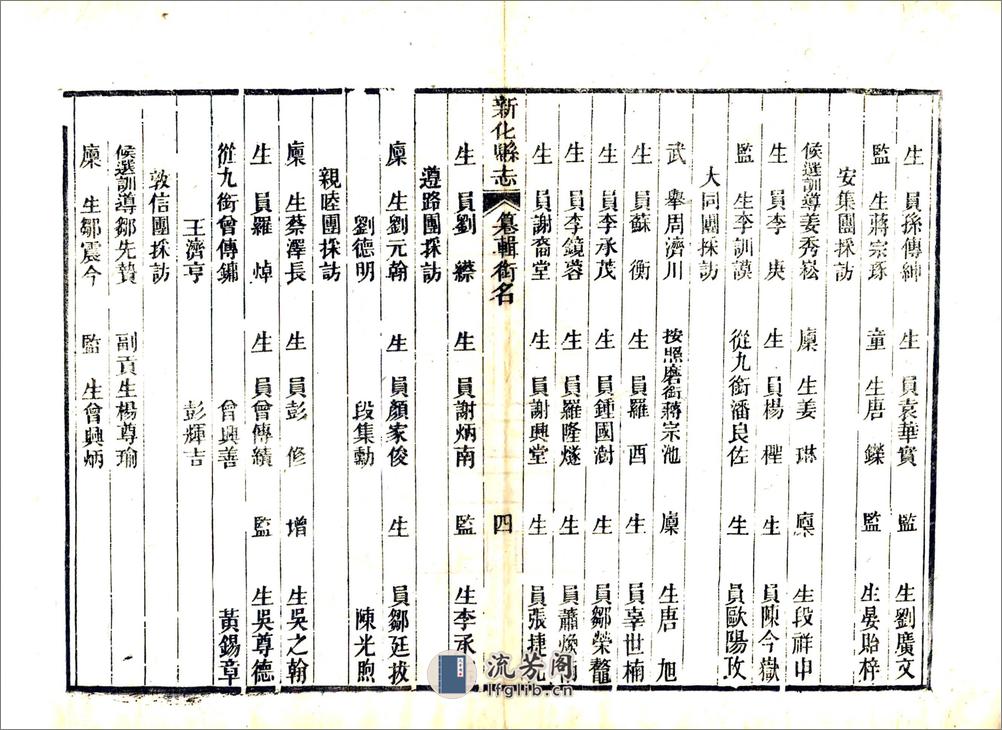 生員孫傳紳　生員袁華實　監生劉廣文
監生蔣宗琢　童生唐鑠　監生晏貽梓
安集團採訪
候選訓導姜秀崧　廩生姜琳　廩生段祥申
生員李庚　生員楊檉　生員陳今嶽
監生李訓謨　從九銜潘良佐　生員歐陽玫
大同團採訪
武舉周濟川　按照磨銜蔣宗池　廩生唐旭
生員蘇衡　生員羅酉　生員辜世楠
生員李承茂　生員鍾國澍　生員鄒榮鼇
生員李鏡蓉　生員羅隆燧　生員蕭煥
生員謝裔堂　生員謝興堂　生員張捷
新化縣志　纂輯銜名　四
生員劉繎　生員謝炳南　監生李承
遵路團採訪
廩生劉元翰　生員顏家俊　生員鄒廷拔
劉德明　段集勳　陳光煦
親睦團採訪
廩生蔡澤長　生員彭修　增生吳之翰
生員羅焯　生員曾傳績　監生吳尊德
從九銜曾傳鏽　曾興善　黃錫章
王濟亨　彭輝吉
敦信團採訪
候選訓導鄒先贄　副貢生楊尊瑜
廩生鄒震今　監生曾興炳
流芳阁
lfglib.cn